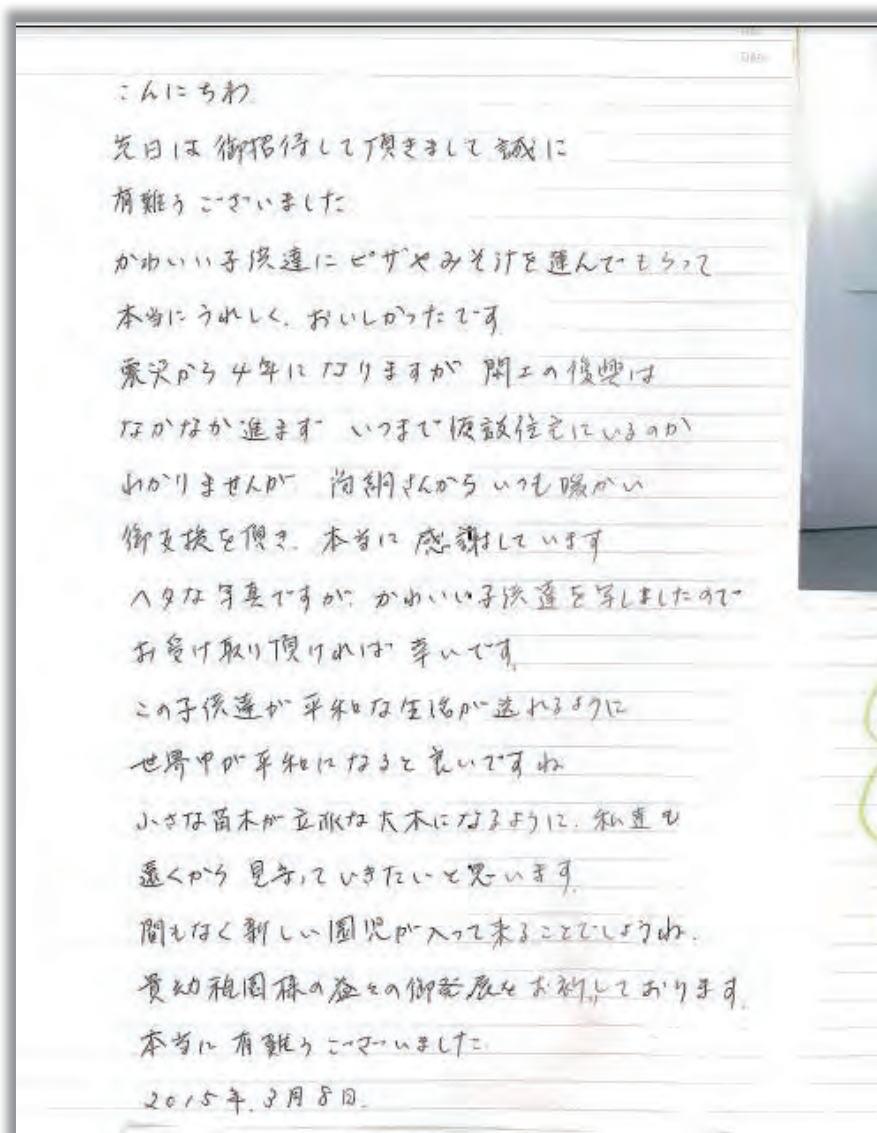 こんにちわ
先日は御招待して頂きまして誠に
有難うございました
かわいい子供達にピザやみそ汁を運んでもらって
本当にうれしく、おいしかったです
震災から4年になりますが 閖上の復興は
なかなか進まず いつまで仮設住宅にいるのか
わかりませんが 尚絅さんからいつも暖かい
御支援を頂き、本当に感謝しています
ヘタな写真ですが、かわいい子供達を写しましたので
お受け取り頂ければ幸いです。
この子供達が平和な生活が送れるように
世界中が平和になると良いですね
小さな苗木が立派な大木になるように、私達も
遠くから見守っていきたいと思います。
間もなく新しい園児が入って来ることでしょうね.
貴幼稚園様の益々の御発展をお祈りしております。
本当に有難うございました
2015年.3月8日.